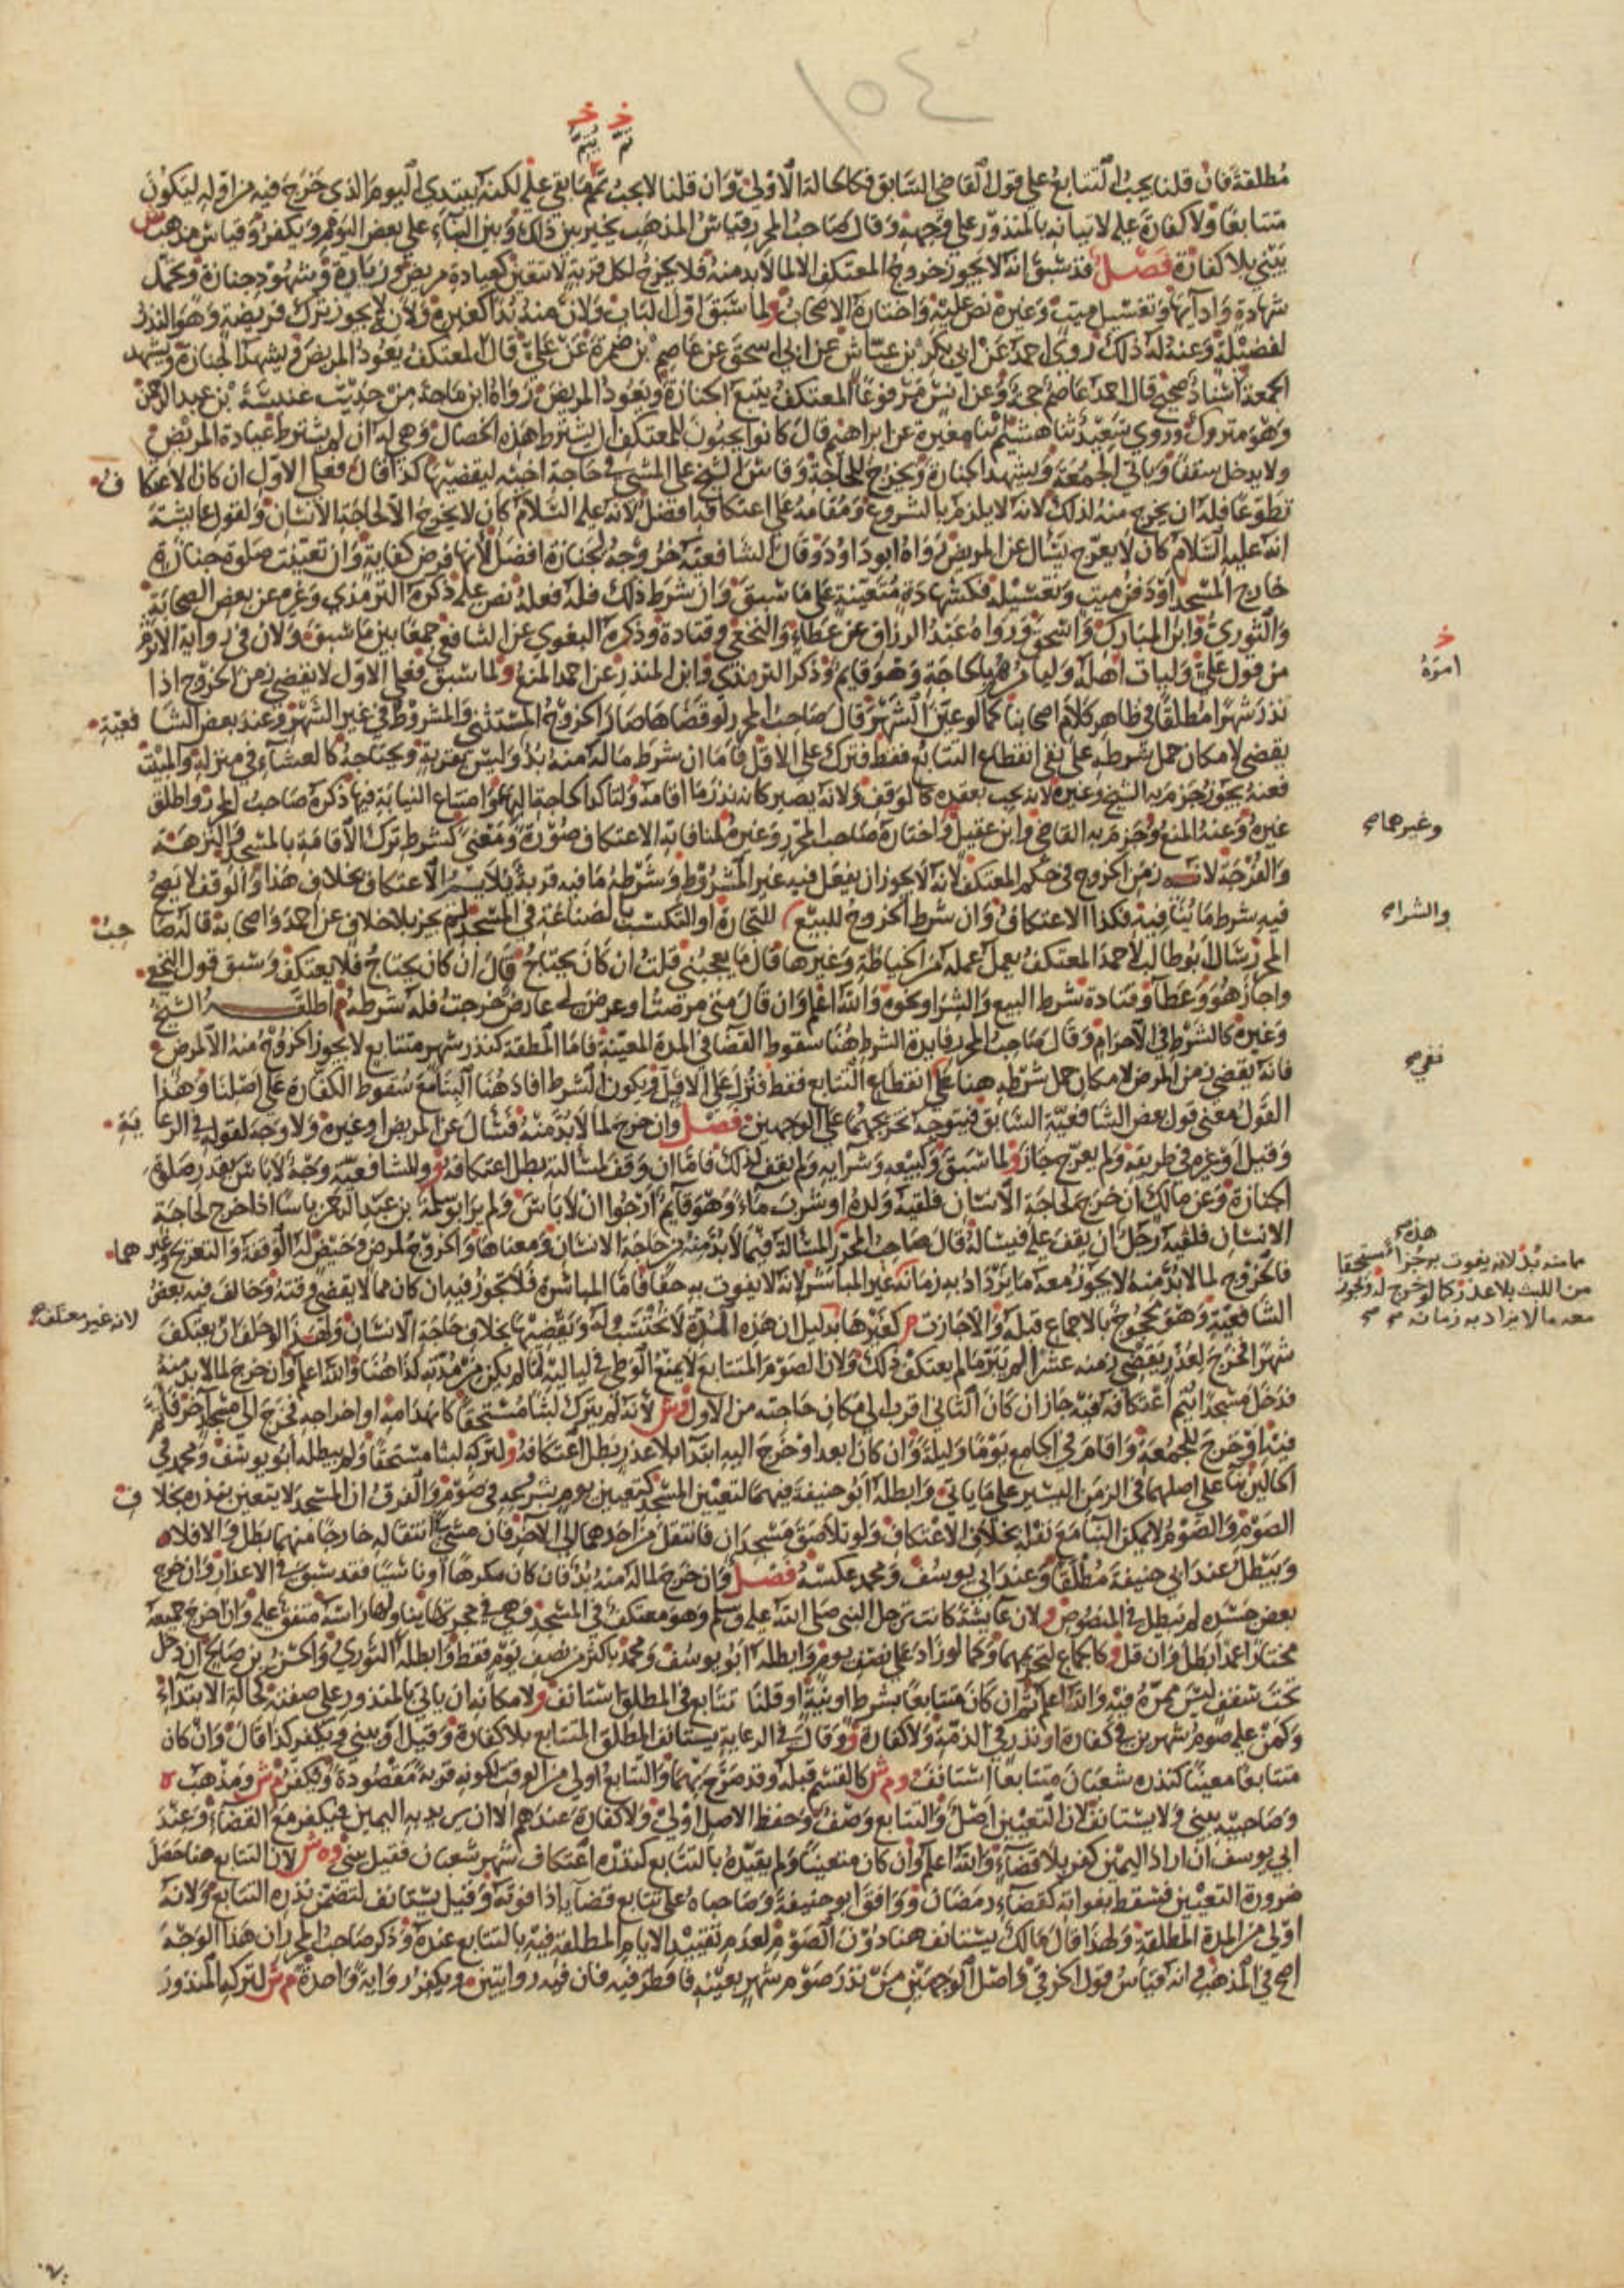 ١٥٤
خ خ
تم يتم
مطلقة فان قلنا يجب التتابع على قول القاضي السابق فكالحالة الاولى وان قلنا لا يجب تمم ما بقي عليه لكنه يبتدي اليوم الذي خرج فيه من اوله ليكون
متتابعا ولا كفارة عليه لاتيانه بالمنذور على وجهه وقال صاحب المحرر قياس المذهب يخير بين ذلك وبين البناء على بعض اليوم ويكفر وقياس مذهب ش
يبني بلا كفارة فصل قد سبق انه لا يجوز خروج المعتكف الا لما لا بد منه فلا يخرج لكل قربة لا تتعين كعيادة مريض وزيارة وشهود جنازة وتحمل
شهادة وادايها وتغسيل ميت وغيره نص عليه واختاره الاصحاب ولما سبق اول الباب ولان منه بدا كغيره ولانه لا يجوز ترك فريضة وهو النذر
لفضيلة وعنه له ذلك روى احمد عن ابي بكر بن عياش عن ابي اسحق عن عاصم بن ضمرة عن علي قال المعتكف يعود المريض ويشهد الجنازة ويشهد
الجمعة اسناد صحيح قال احمد عاصم حجة وعن انس مرفوعا المعتكف يتبع الجنازة ويعود المريض رواه ابن ماجة من حديث عنبسة بن عبد الرحمن
وهو متروك وروى سعيد ثنا هشيم ثنا مغيرة عن ابراهيم قال كانوا يحبون للمعتكف ان يشترط هذه الخصال وهي له ان لم يشترط عيادة المريض
ولا يدخل سقفا وياتي الجمعة ويشهد الجنازة ويخرج للحاجة وقاس الشيخ على المشي في حاجة اخيه ليقضيها كذا قال فعلى الاول ان كان الاعتكاف
تطوعا فله ان يخرج منه لذلك لانه لا يلزم بالشروع ومقامه على اعتكافه افضل لانه عليه السلام كان لا يخرج الا لحاجة الانسان ولقول عايشة
انه عليه السلام كان لا يعرج يسال عن المريض رواه ابو داود وقال الشافعية خروجه لجنازة افضل لانها فرض كفاية وان تعينت صلوة جنازة
خارج المسجد او دفن ميت وتغسيله فكشهادة متعينة على ما سبق وان شرط ذلك فله فعله نص عليه ذكره الترمذي وغيره عن بعض الصحابة
والثوري وابن المبارك واسحق ورواه عبد الرزاق عن عطاء والنخعي وقتادة وذكره البغوي عن الشافعي جمعا بين ما سبق ولان في رواية الاثرم
من قول علي وليات اهله وليامرهم بالحاجة وهو قايم وذكر الترمذي وابن المنذر عن احمد المنع ولما سبق فعلى الاول لا يقضي زمن الخروج اذا
خ
امره
نذر شهرا مطلقا في ظاهر كلام اصحابنا كما لو عين الشهر قال صاحب المحرر لو قضاها صار الخروج المستثنى والمشروط في غير الشهر وعند بعض الشافعية
يقضي لامكان حمل شرطه على نفي انقطاع التتابع فقط فنزل على الاقل فاما ان شرط ما له منه بد وليس بقربة ويحتاجه كالعشاء في منزله والمبيت
فعنه يجوز جزم به الشيخ وغيره لانه يجب بعقده كالوقف ولانه يصير كانه نذر ما اقامه ولتاكد الحاجة اليهما وامتناع النيابة فيهما ذكره صاحب المحرر واطلق
غيره وعنه المنع وجزم به القاضي وابن عقيل واختاره صاحب المحرر وغيره لمنافاته الاعتكاف صورة ومعنى كشرط ترك الاقامة بالمسجد والنزهة
وغيرهما صح
والفرجة لان زمن الخروج في حكم المعتكف لانه لا يجوز ان يفعل فيه غير المشروط وشرطه ما فيه قربة يلايم الاعتكاف بخلاف هذا والوقف لا يصح
فيه شرط ما ينافيه فكذا الاعتكاف وان شرط الخروج للبيع للتجارة او التكسب بالصناعة في المسجد لم يجز بلا خلاف عن احمد واصحابه قاله صاحب
والشراء صح
المحرر سال ابو طالب لاحمد المعتكف يعمل عمله من الخياطة وغيرها قال ما يعجبني قلت ان كان يحتاج قال ان كان يحتاج فلا يعتكف وسبق قول النخعي
واجاز هو وعطا وقتادة شرط البيع والشرا ونحوه والله اعلم وان قال متى مرضت او عرض لي عارض خرجت فله شرطه اطلقه الشيخ
وغيره كالشرط في الاحرام وقال صاحب المحرر فايدة الشرط هنا سقوط القضا في المدة المعينة فاما المطلقة كنذر شهر متتابع لا يجوز الخروج منه الا لمرض
فانه يقضي زمن المرض لامكان حمل شرطه هنا على انقطاع التتابع فقط فنزل على الاقل ويكون الشرط افاد هنا البناء مع سقوط الكفارة على اصلنا وهذا
نفي صح
القول معنى قول بعض الشافعية السابق فيتوجه تخريجهما على الوجهين فصل وان خرج لما لا بد منه فسال عن المريض او غيره ولا وجه لقوله في الرعاية
وقيل او غيره في طريقه ولم يعرج جاز ولما سبق وكبيعه وشرايه ولم يقف لذلك فاما ان وقف لمسالته بطل اعتكافه و وللشافعية وجه لا باس بقدر صلاة
الجنازة وعن مالك ان خرج لحاجة الانسان فلقيه ولده او شرب ماء وهو قايم ارجوا ان لا باس ولم ير ابو سلمة بن عبد الرحمن باسا اذا خرج لحاجة
الانسان فلقيه رجل ان يقف عليه فيساله قال صاحب المحرر المسالة فيما لا بد منه من حاجة الانسان ومعناها والخروج لمرض وحيض له الوقفة والتعريج وغيرهما
فالخروج لما لا بد منه لا يجوز معه ما يزداد به زمانه غير المباشر لانه لا يفوت به حقا فاما المباشرة فلا يجوز فيه ان كان مما لا يقضي وقته وخالف فيه بعض
هذه صح
ما منه بد لانه يفوت به جزأ مستحقا
من اللبث بلا عذر كما لو خرج له ويجوز
معه ما لا يزاد به زمانه صح صح
الشافعية وهو محجوج بالاجماع قبله والاجازت كغيرها بدليل ان هذه المدة لا تحتسب له ويقضيها بخلاف حاجة الانسان ولهذا لو حلف ان يعتكف
لانه غير معتكف صح
شهرا فخرج لعذر يقضي زمنه عشرا لم يبر ما لم يعتكف ذلك ولان الصوم المتتابع لا يمنع الوطي في لياليه لما لم يكن من مدته كذا هنا والله اعلم وان خرج لما لا بد منه
فدخل مسجدا يتم اعتكافه فيه جاز ان كان الثاني اقرب الى مكان حاجته من الاول وش لانه لم يترك لبثا مستحقا كانهدامه او اخراجه فخرج الى مسجد اخر فاتم
فيه او خرج للجمعة واقام في الجامع يوما وليلة وان كان ابعد او خرج اليه ابتدا بلا عذر بطل اعتكافه ولتركه لبثا مستحقا ولم يبطله ابو يوسف ومحمد في
الحالين بنا على اصلهما في الزمن اليسير على ما ياتي وابطله ابو حنيفة فيهما لتعيين المسجد كتعيين يوم شرع فيه في صوم والفرق ان المسجد لا يتعين بنذره بخلاف
الصوم والصوم لا يمكن البنا مع نقله بخلاف الاعتكاف ولو تلاصق مسجدان فانتقل من احدهما الى الاخر فان مشى في انتقاله خارجا منهما بطل والا فلا
ويبطل عند ابي حنيفة مطلقا وعند ابي يوسف ومحمد عكسه فصل وان خرج لما له منه بد فان كان مكرها او ناسيا فقد سبق في الاعذار وان خرج
بعض جسده لم يبطل في المنصوص و ولان عايشة كانت ترجل النبي صلى الله عليه وسلم وهو معتكف في المسجد وهي في حجرتها يناولها راسه متفق عليه وان اخرج جميعه
مختارا عمدا بطل وان قل و كالجماع لتحريمهما وكما لو زاد على نصف يوم وابطله ابو يوسف ومحمد باكثر من نصف يوم فقط وابطله الثوري والحسن بن صالح ان دخل
تحت سقف ليس ممره فيه والله اعلم ثم ان كان متتابعا بشرط او بنية او قلنا تتابع في المطلق استانف ولامكانه ان ياتي بالمنذور على صفته كحالة الابتداء
وكمن عليه صوم شهرين في كفارة او نذر في الذمة ولا كفارة و وقال في الرعاية يستانف المطلق المتتابع بلا كفارة وقيل او يبني ويكفر كذا قال وان كان
متتابعا معينا كنذره شعبان متتابعا استانف و م ش كالقسم قبله وقد صرح بهما والتتابع اولى من الوقت لكونه قربة مقصودة ويكفر م ش ومذهب ه
وصاحبيه يبني ولا يستانف لان التعيين اصل والتتابع وصف وحفظ الاصل اولى ولا كفارة عندهم الا ان يريد به اليمين فيكفر مع القضاء وعند
ابي يوسف ان اراد اليمين كفر بلا قضاء والله اعلم وان كان متعينا ولم يقيده بالتتابع كنذره اعتكاف شهر شعبان فقيل يبني و ه ش لان التتابع هنا حصل
ضرورة التعيين فسقط بفواته كقضاء رمضان ووافق ابو حنيفة وصاحباه على تتابع قضايه اذا فوته وقيل يستانف لتضمن نذره التتابع ولانه
اولى من المدة المطلقة ولهذا قال مالك يستانف هنا دون الصوم لعدم تقييد الايام المطلقة فيه بالتتابع عنده وذكر صاحب المحرر ان هذا الوجه
اصح في المذهب وانه قياس قول الخرقي واصل الوجهين من نذر صوم شهر بعينه فافطر فيه فان فيه روايتين ويكفر رواية واحدة م ش لتركه المنذور